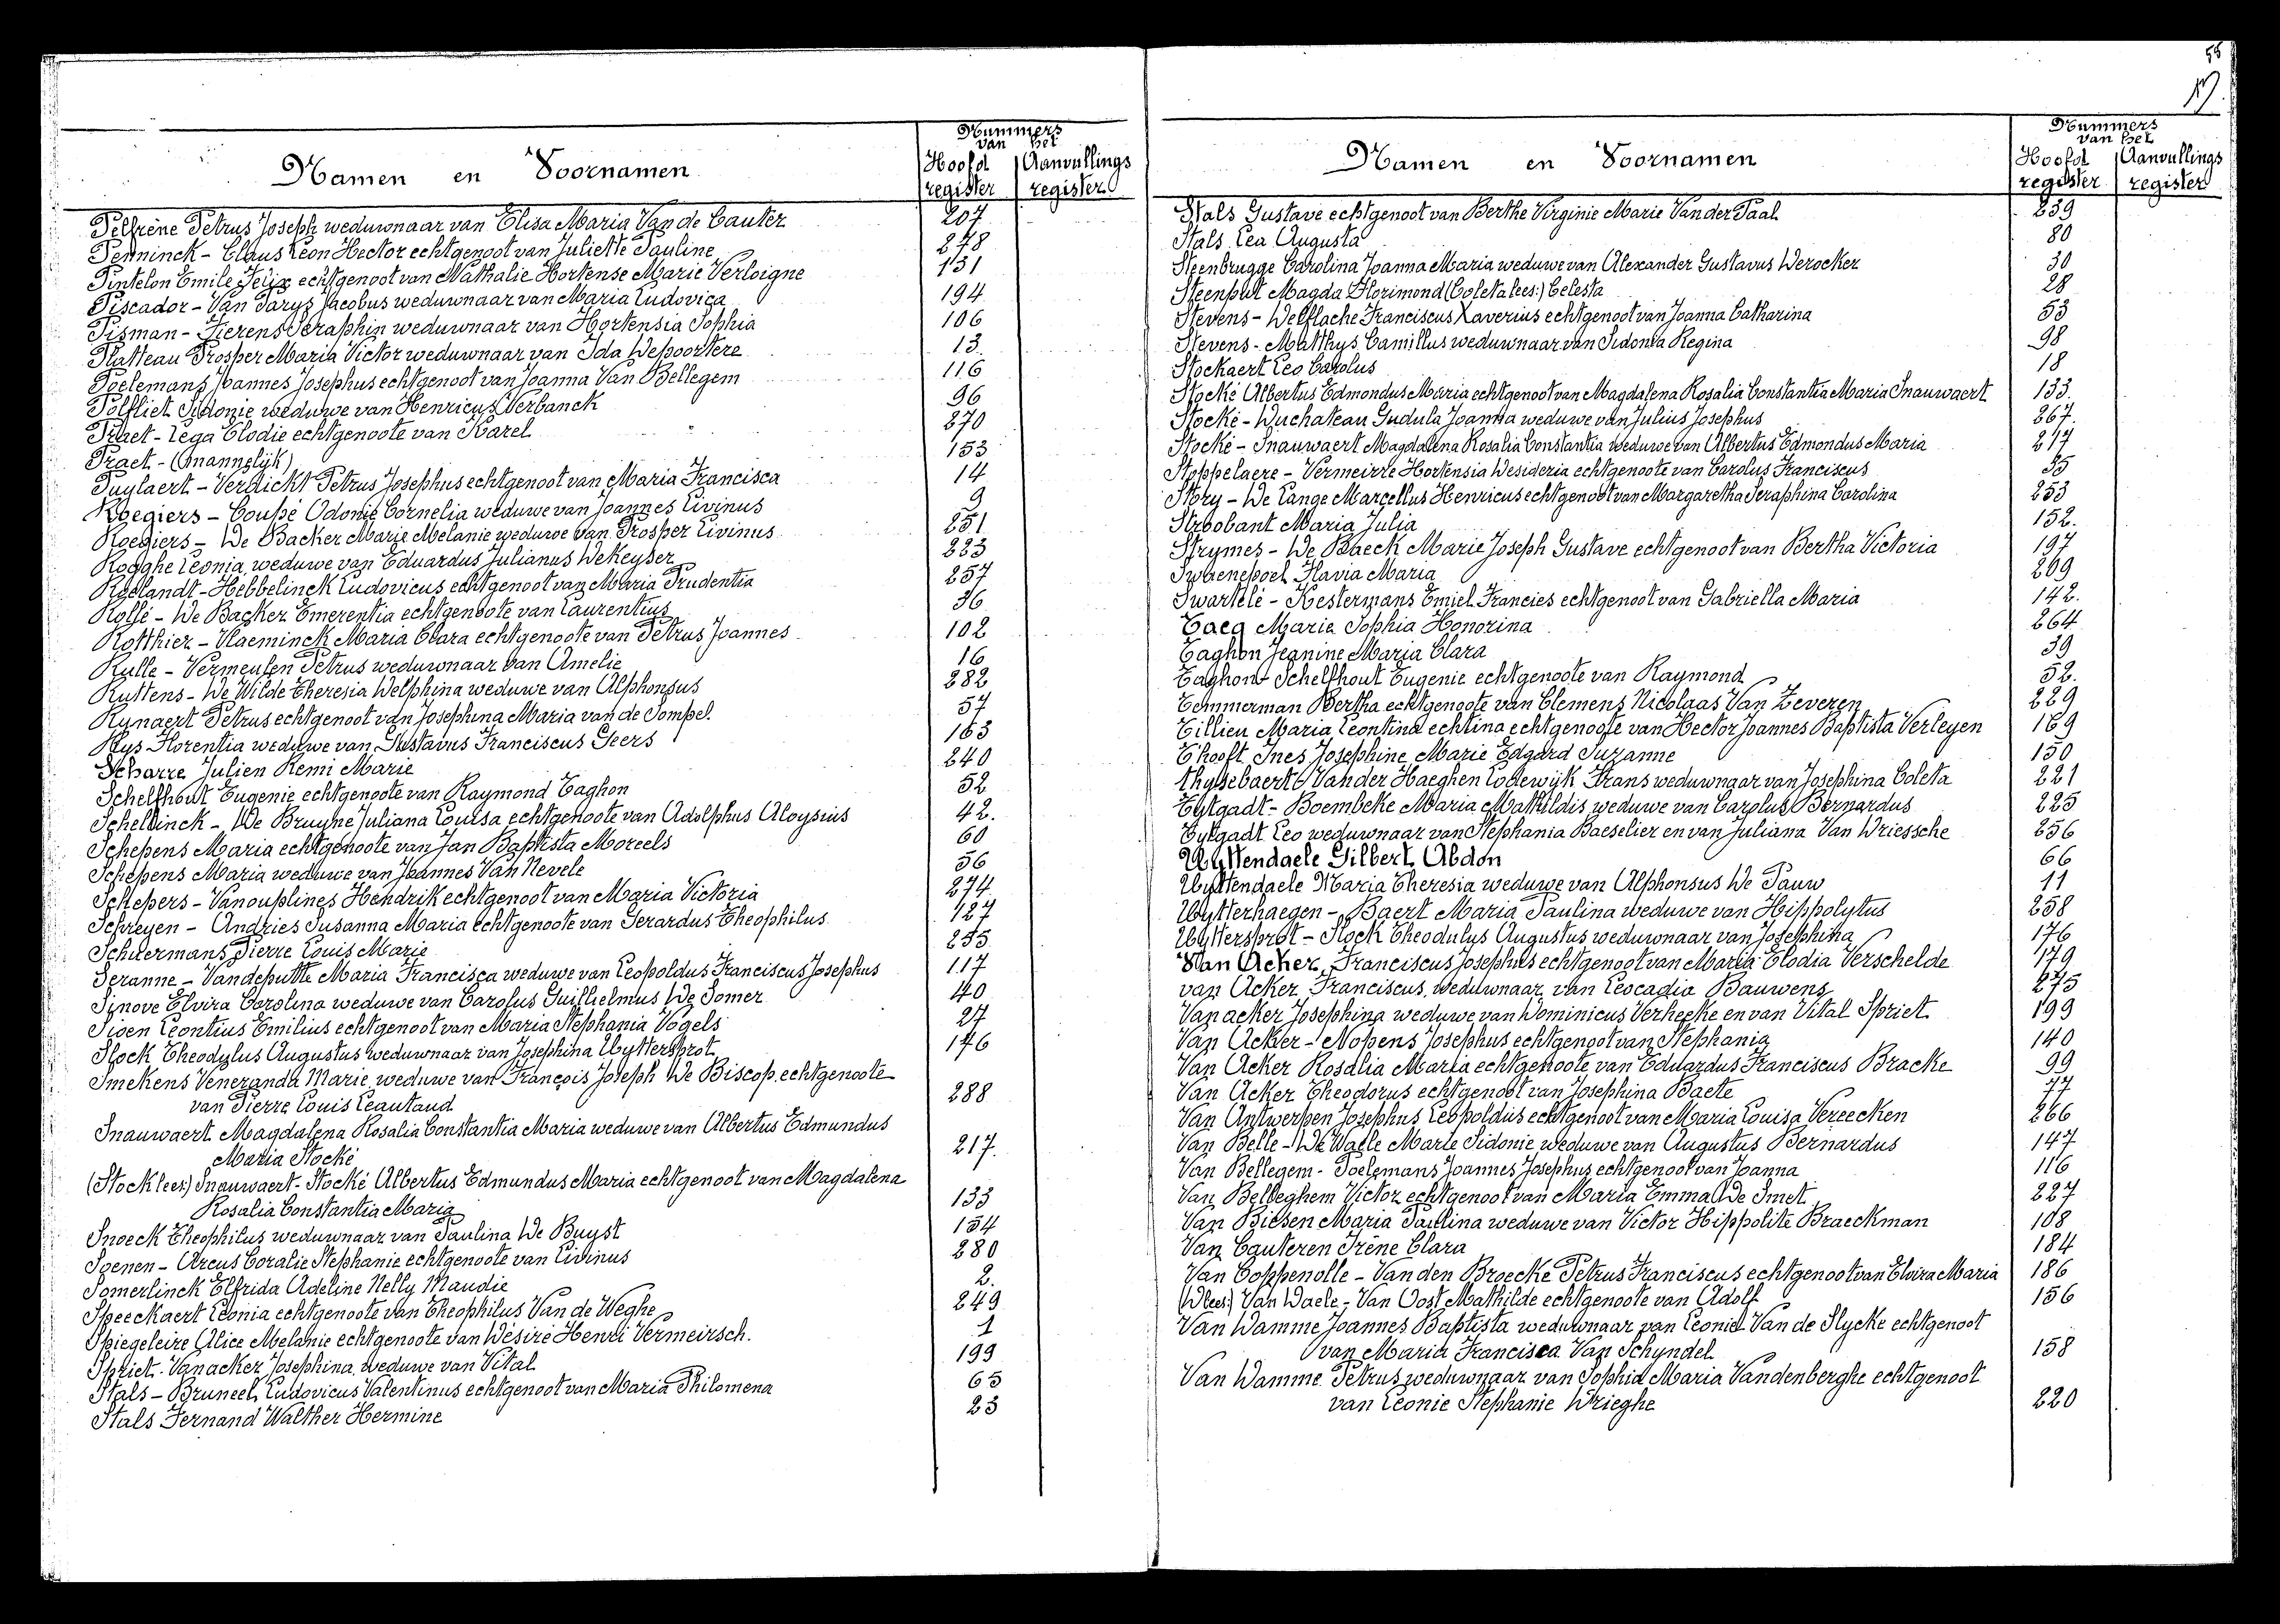 55
Nummers
van het
Namen en Voornamen
Hoofd register
Aanvullings register
Pelfrène Petrus Joseph weduwnaar van Elisa Maria Van de Cauter 207
Penninck - Claus Leon Hector echtgenoot van Juliette Pauline 278
Pintelon Emile Félix echtgenoot van Nathalie Hortense Marie Verloigne 131
Piscador - Van Parys Jacobus weduwnaar van Maria Ludovica 194
Pisman - Fierens Seraphin weduwnaar van Hortensia Sophia 106
Platteau Prosper Maria Victor weduwnaar van Ida Depoortere 13
Poelemans Joannes Josephus echtgenoot van Joanna Van Bellegem 116
Polfliet Sidonie weduwe van Henricus Verbanck 96
Praet - Lega Elodie echtgenoote van Karel 270
Praet - (mannelijk) 153
Puylaert - Verdickt Petrus Josephus echtgenoot van Maria Francisca 14
Roegiers - Coupé Odonie Cornelia weduwe van Joannes Livinus 9
Roegiers - De Backer Marie Melanie weduwe van Prosper Livinus 251
Rogghe Leonia weduwe van Eduardus Julianus De Keyser 223
Roelandt - Hebbelinck Ludovicus echtgenoot van Maria Prudentia 257
Rollé - De Backer Emerentia echtgenoote van Laurentius 36
Rotthier - Vlaeminck Maria Clara echtgenoote van Petrus Joannes 102
Rulle - Vermeulen Petrus weduwnaar van Amelie 16
Ruttens - De Wilde Theresia Delphina weduwe van Alphonsus 282
Rynaert Petrus echtgenoot van Josephina Maria van de Sompel. 57
Rys Florentia weduwe van Gustavus Franciscus Geers 163
Scharre Julien Remi Marie 240
Schelfhout Eugenie echtgenoote van Raymond Taghon 52
Scheldinck - De Bruyne Juliana Louisa echtgenoote van Adolphus Aloysius 42.
Schepens Maria echtgenoote van Jan Baptista Moreels 60
Schepens Maria weduwe van Joannes Van Nevele 56
Schepers - Vanouplines Hendrik echtgenoot van Maria Victoria 274
Schreyen - Andries Susanna Maria echtgenoote van Gerardus Theophilus 127
Schuermans Pierre Louis Marie 255
Seranne - Vandeputte Maria Francisca weduwe van Leopoldus Franciscus Josephus 117
Sinove Elvira Carolina weduwe van Carolus Guillielmus De Somer 40
Sioen Leontius Emilius echtgenoot van Maria Stephania Vogels 27
Slock Theodulus Augustus weduwnaar van Josephina Uyttersprot 176
Smekens Veneranda Marie weduwe van François Joseph De Biscop, echtgenoote
van Pierre Louis Leautaud 288
Snauwaert Magdalena Rosalia Constantia Maria weduwe van Albertus Edmundus
Maria Stocké 217.
(Stock lees:) Snauwaert - Stocké Albertus Edmundus Maria echtgenoot van Magdalena
Rosalia Constantia Maria 133
Snoeck Theophilus weduwnaar van Paulina De Buyst 154
Soenen - Arcus Coralie Stephanie echtgenoote van Livinus 280
Somerlinck Elfrida Adeline Nelly Maudie 2.
Speeckaert Leonia echtgenoote van Theophilus Van de Weghe 249
Spiegeleire Alice Melanie echtgenoote van Désiré Henri Vermeirsch. 1
Spriet - Vanacker Josephina weduwe van Vital 199
Stals - Bruneel Ludovicus Valentinus echtgenoot van Maria Philomena 65
Stals Fernand Walther Hermine 23
Nummers
van het
Namen en Voornamen
Hoofd register
Aanvullings register
Stals Gustave echtgenoot van Berthe Virginie Marie Van der Taal 239
Stals Lea Augusta 80
Steenbrugge Carolina Joanna Maria weduwe van Alexander Gustavus Derocker 30
Steenput Magda Florimond (Coleta lees:) Celesta 28
Stevens - Delflache Franciscus Xaverius echtgenoot van Joanna Catharina 53
Stevens - Matthys Camillus weduwnaar van Sidonia Regina 98
Stockaert Leo Carolus 18
Stocké Albertus Edmondus Maria echtgenoot van Magdalena Rosalia Constantia Maria Snauwaert 133.
Stocké - Duchateau Gudula Joanna weduwe van Julius Josephus 267
Stocké - Snauwaert Magdalena Rosalia Constantia weduwe van Albertus Edmondus Maria 217
Stoppelaere - Vermeirre Hortensia Desideria echtgenoote van Carolus Franciscus 35
Story - De Lange Marcellus Henricus echtgenoot van Margaretha Seraphina Carolina 253
Stroobant Maria Julia 152.
Strymes - De Baeck Marie Joseph Gustave echtgenoot van Bertha Victoria 197
Swaenepoel Flavia Maria 269
Swartelé - Kestermans Emiel Francies echtgenoot van Gabriella Maria 142.
Taeg Maria Sophia Honorina 264
Taghon Jeanine Maria Clara 39
Taghon - Schelfhout Eugenie echtgenoote van Raymond 52.
Temmerman Bertha echtgenoote van Clemens Nicolaas Van Zeveren 229
Tillieu Maria Leontina echtina echtgenoote van Hector Joannes Baptista Verleyen 169
T'hooft Ines Josephine Marie Edgard Suzanne 150
thysebaert Van der Haeghen Lodewijk Frans weduwnaar van Josephina Coleta 221
Tytgadt - Boembeke Maria Mathildis weduwe van Carolus Bernardus 225
Tytgadt Leo weduwnaar van Stephania Baeselier en van Juliana Van Driessche 256
Uyttendaele Gilbert Abdon 66
Uyttendaele Maria Theresia weduwe van Alphonsus De Pauw 11
Uytterhaegen - Baert Maria Paulina weduwe van Hippolytus 258
Uyttersprot - Slock Theodulus Augustus weduwnaar van Josephina 176
Van Acker, Franciscus Josephus echtgenoot van Maria Elodia Verschelde 179
van Acker Franciscus, weduwnaar van Leocadia Bauwens 275
Vanacker Josephina weduwe van Dominicus Verheeke en van Vital Spriet 199
Van Acker - Nopens Josephus echtgenoot van Stephania 140
Van Acker Rosalia Maria echtgenoote van Eduardus Franciscus Bracke 99
Van Acker Theodorus echtgenoot van Josephina Baete 77
Van Antwerpen Josephus Leopoldus echtgenoot van Maria Louisa Vereecken 266
Van Belle - De Waele Marie Sidonie weduwe van Augustus Bernardus 147
Van Bellegem - Poelemans Joannes Josephus echtgenoot van Joanna 116
Van Belleghem Victor echtgenoot van Maria Emma De Smet 227
Van Biesen Maria Paulina weduwe van Victor Hippolite Braeckman 108
Van Cauteren Irène Clara 184
Van Coppenolle - Van den Broecke Petrus Franciscus echtgenoot van Elvira Maria 186
(Dlees:) Van Daele - Van Oost Mathilde echtgenoote van Adolf 156
Van Damme Joannes Baptista weduwnaar van Leonie Van de Slycke echtgenoot
van Maria Francisca Van Schyndel 158
Van Damme Petrus weduwnaar van Sophia Maria Vandenberghe echtgenoot
van Leonie Stephanie Drieghe 220